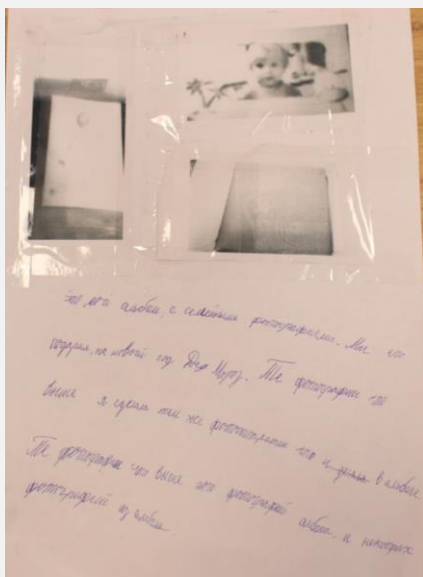 Это мой альбом, с семейными фотографиями. Мне его
подарил, на новый год Дед Мороз. Те фотографии что
выше я сделал там же фотоаппаратом что и в альбоме
Те фотографии что выше это фотографии альбома и некоторых
фотографий из альбома.